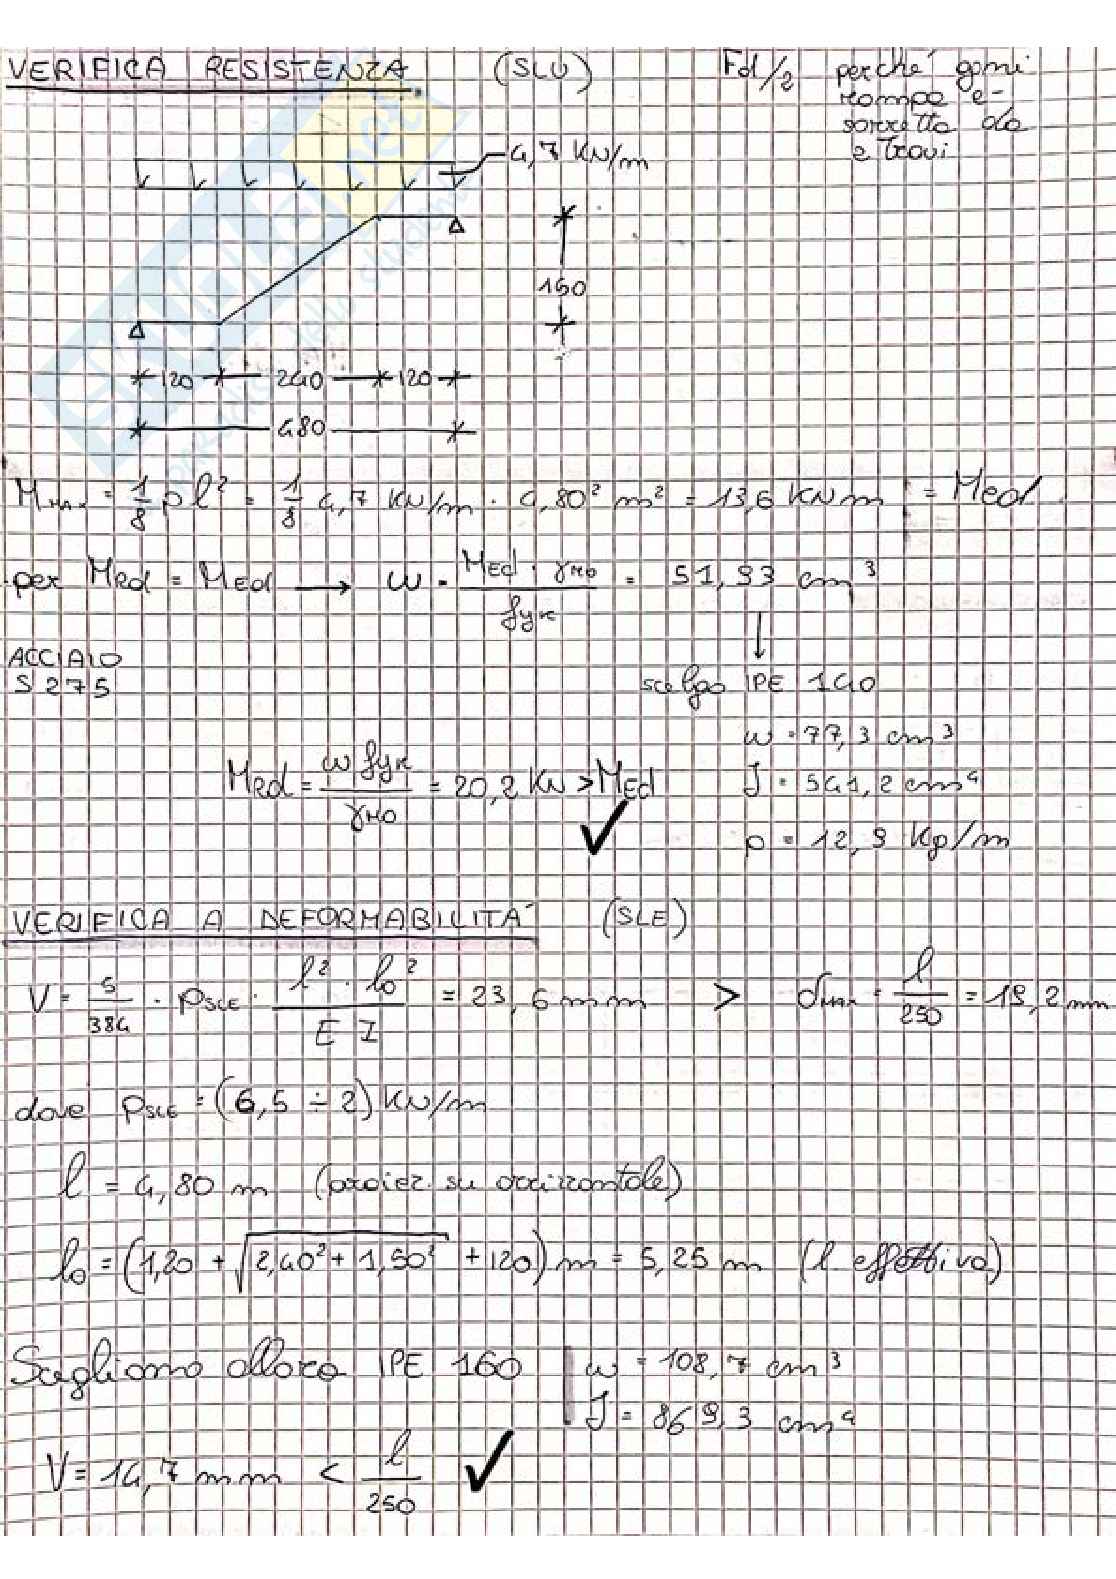 VERIFICA RESISTENZA (SLU) Fd/2 perché ogni
rampa è
sorretta da
2 travi
4,7 KN/m
160
120 240 120
480
M_MAX = 1/8 p l² = 1/8 4,7 KN/m · 4,80² m² = 13,6 KN m = Med
per MRd = MEd → W = MEd · γM0 / fyk = 51,93 cm³
ACCIAIO
S 275
scelgo IPE 140
W = 77,3 cm³
MRd = W fyk / γM0 = 20,2 KN > MEd ✓
J = 541,2 cm⁴
p = 12,9 Kg/m
VERIFICA A DEFORMABILITA' (SLE)
V = 5/384 · pSLE · l² · l0² / E I = 23,6 mm > δMAX = l/250 = 19,2 mm
dove pSLE = (6,5 ÷ 2) KN/m
l = 4,80 m (proiez. su orizzontale)
l0 = (1,20 + √2,40² + 1,50² + 120) m = 5,25 m (l effettiva)
Scegliamo allora IPE 160 W = 108,7 cm³
J = 869,3 cm⁴
V = 14,7 mm < l/250 ✓